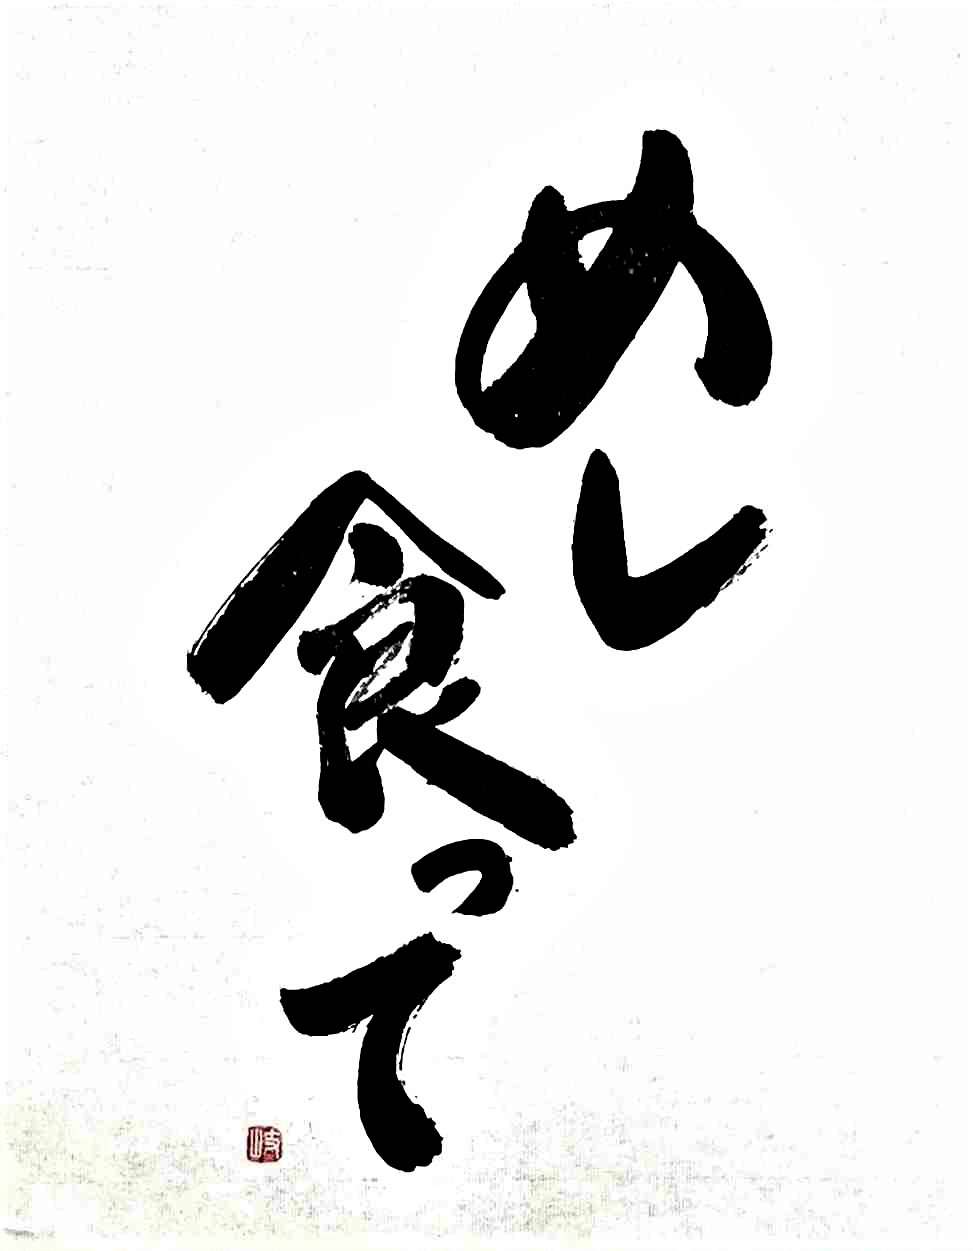 めし
食って
岐